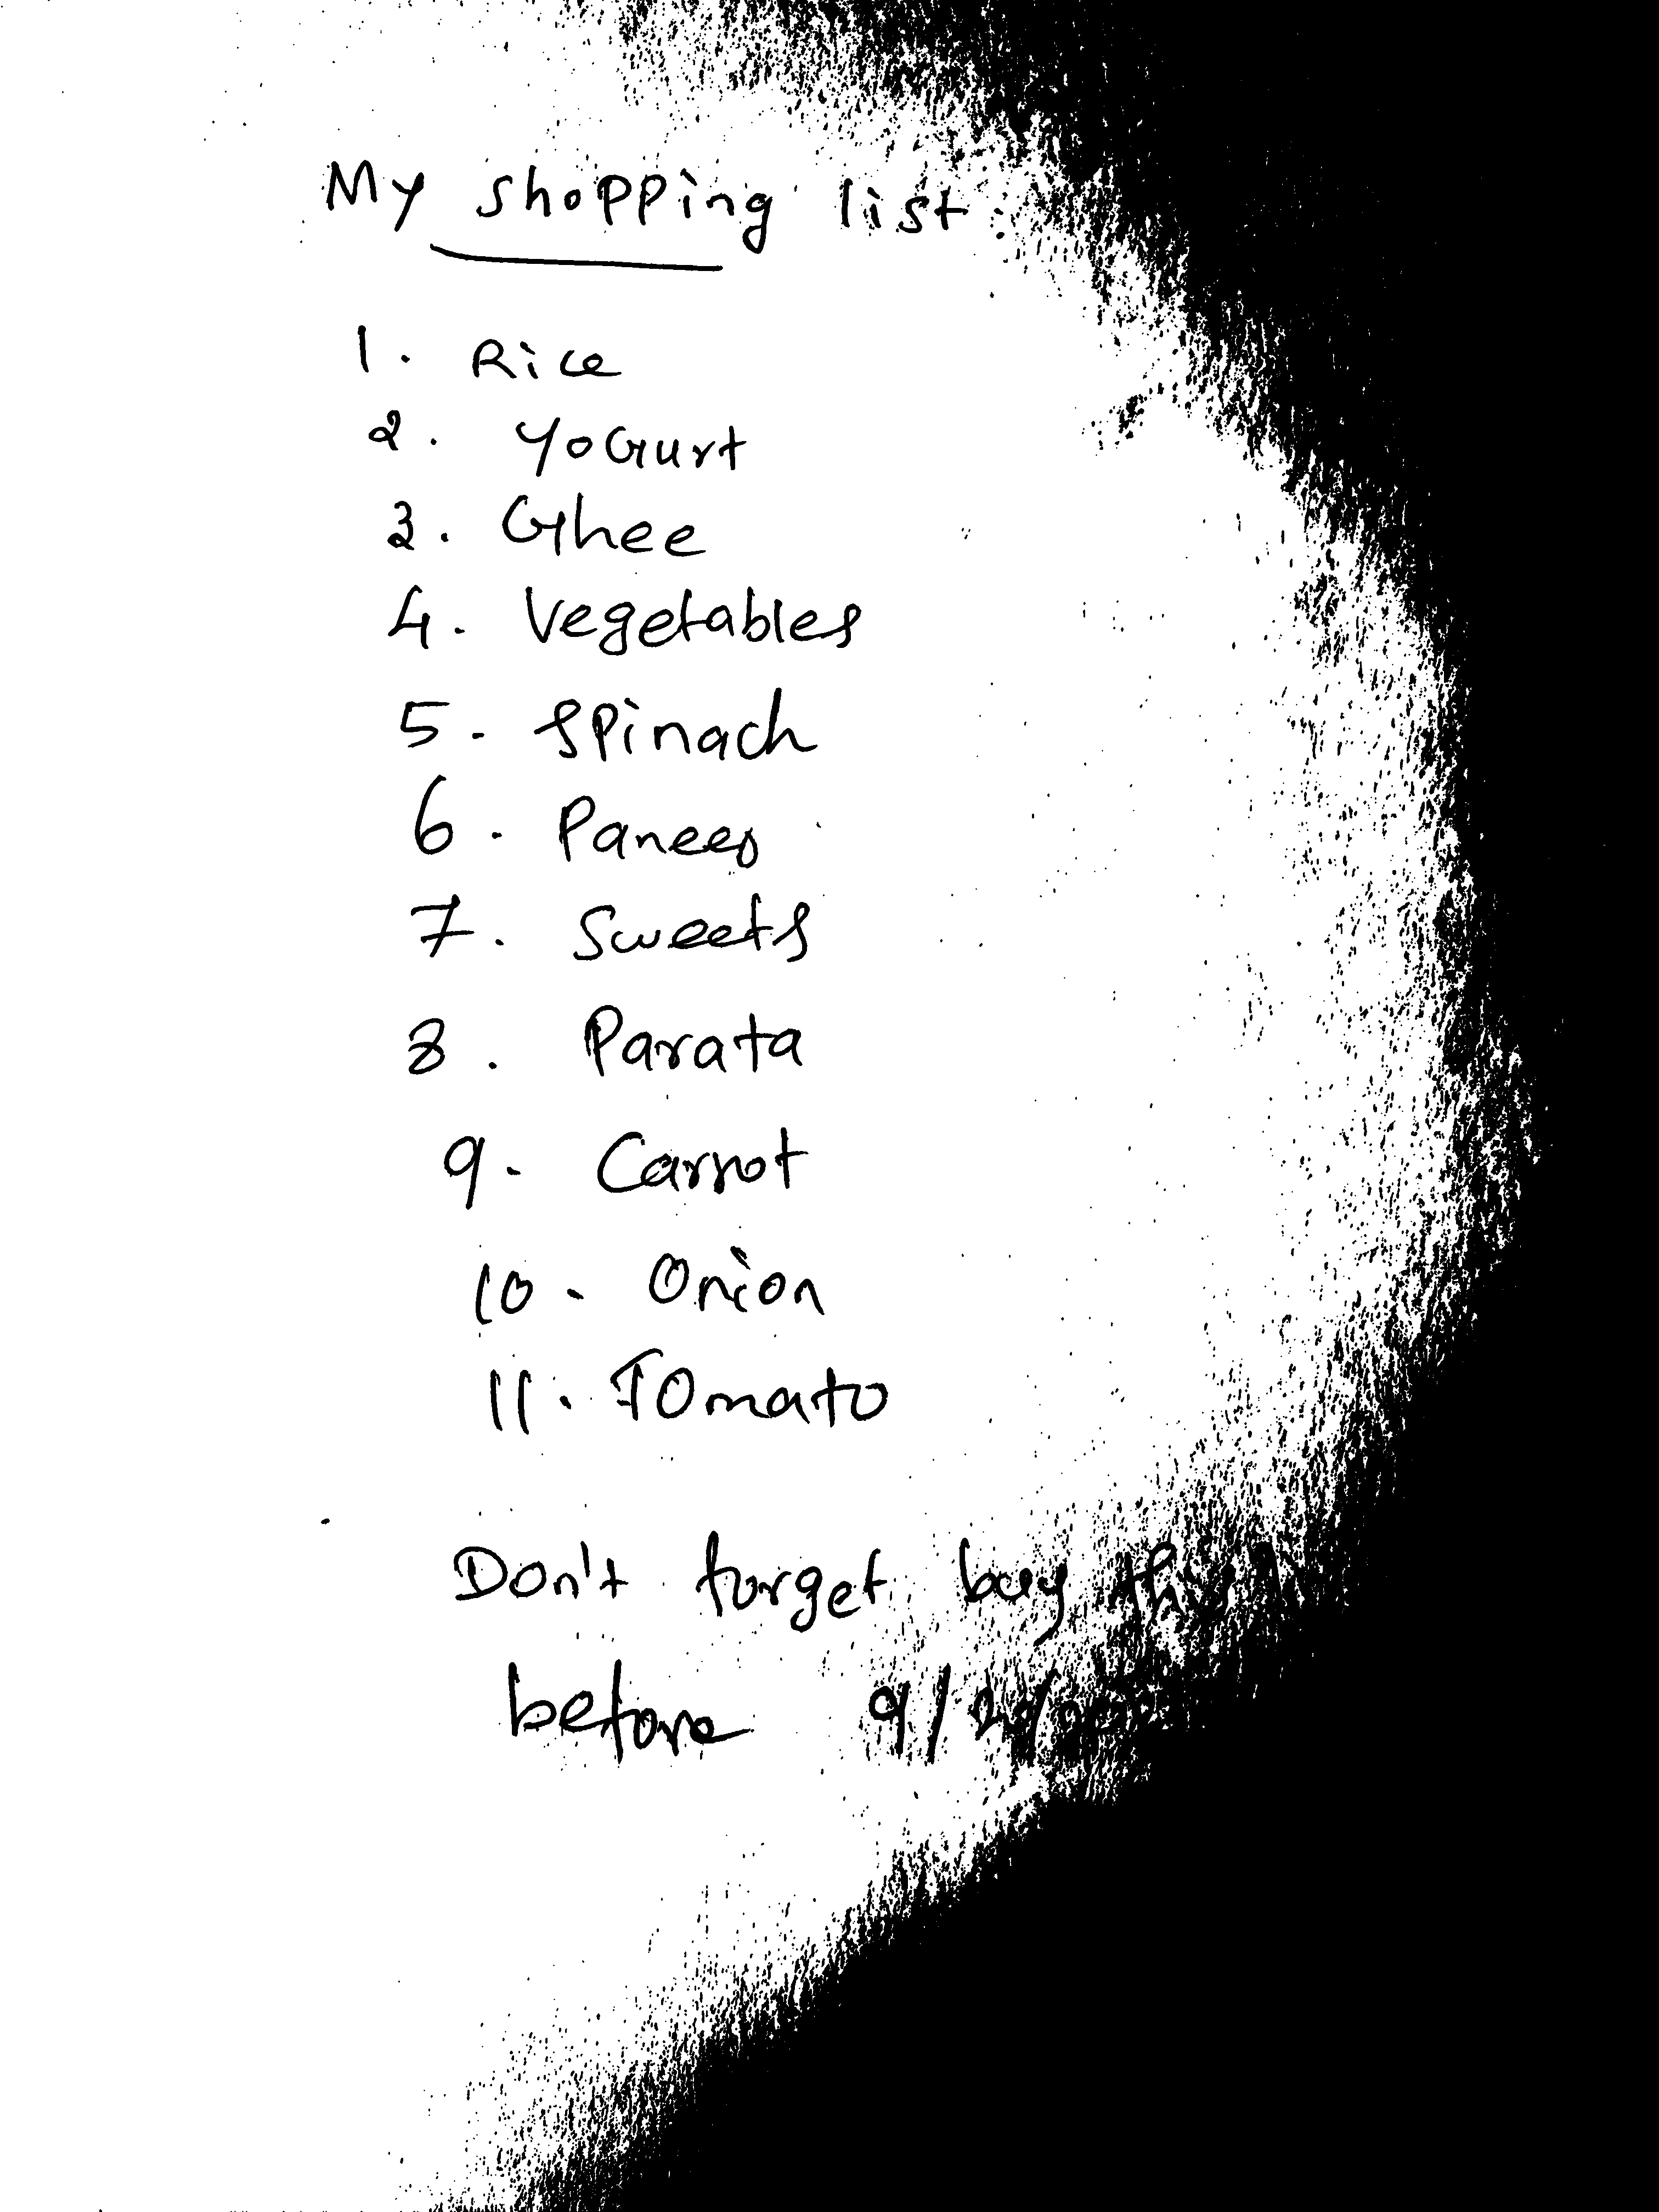 My shopping list:
1. Rice
2. YoGurt
3. Ghee
4. Vegetables
5. Spinach
6. Paneer
7. Sweets
8. Parata
9. Carrot
10. Onion
11. TOmato
Don't forget buy
before 9/